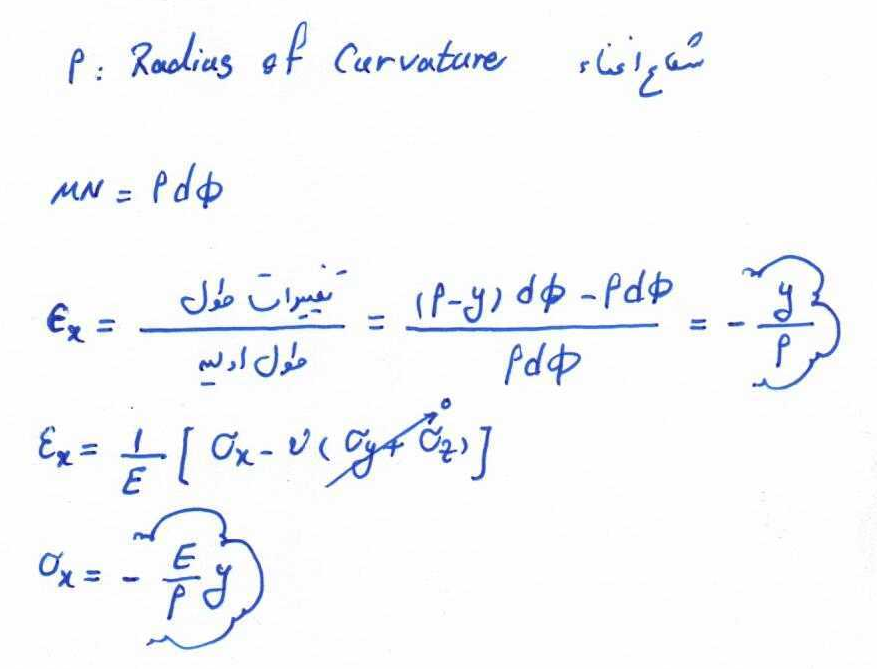 ρ: Radius of Curvature شعاع انحناء
MN = ρdϕ
ϵx = تغییرات طول / طول اولیه = (ρ-y) dϕ - ρdϕ / ρdϕ = - y/ρ
εx = 1/E [ σx - ν (σy + σz) ] 0
σx = - E/ρ y